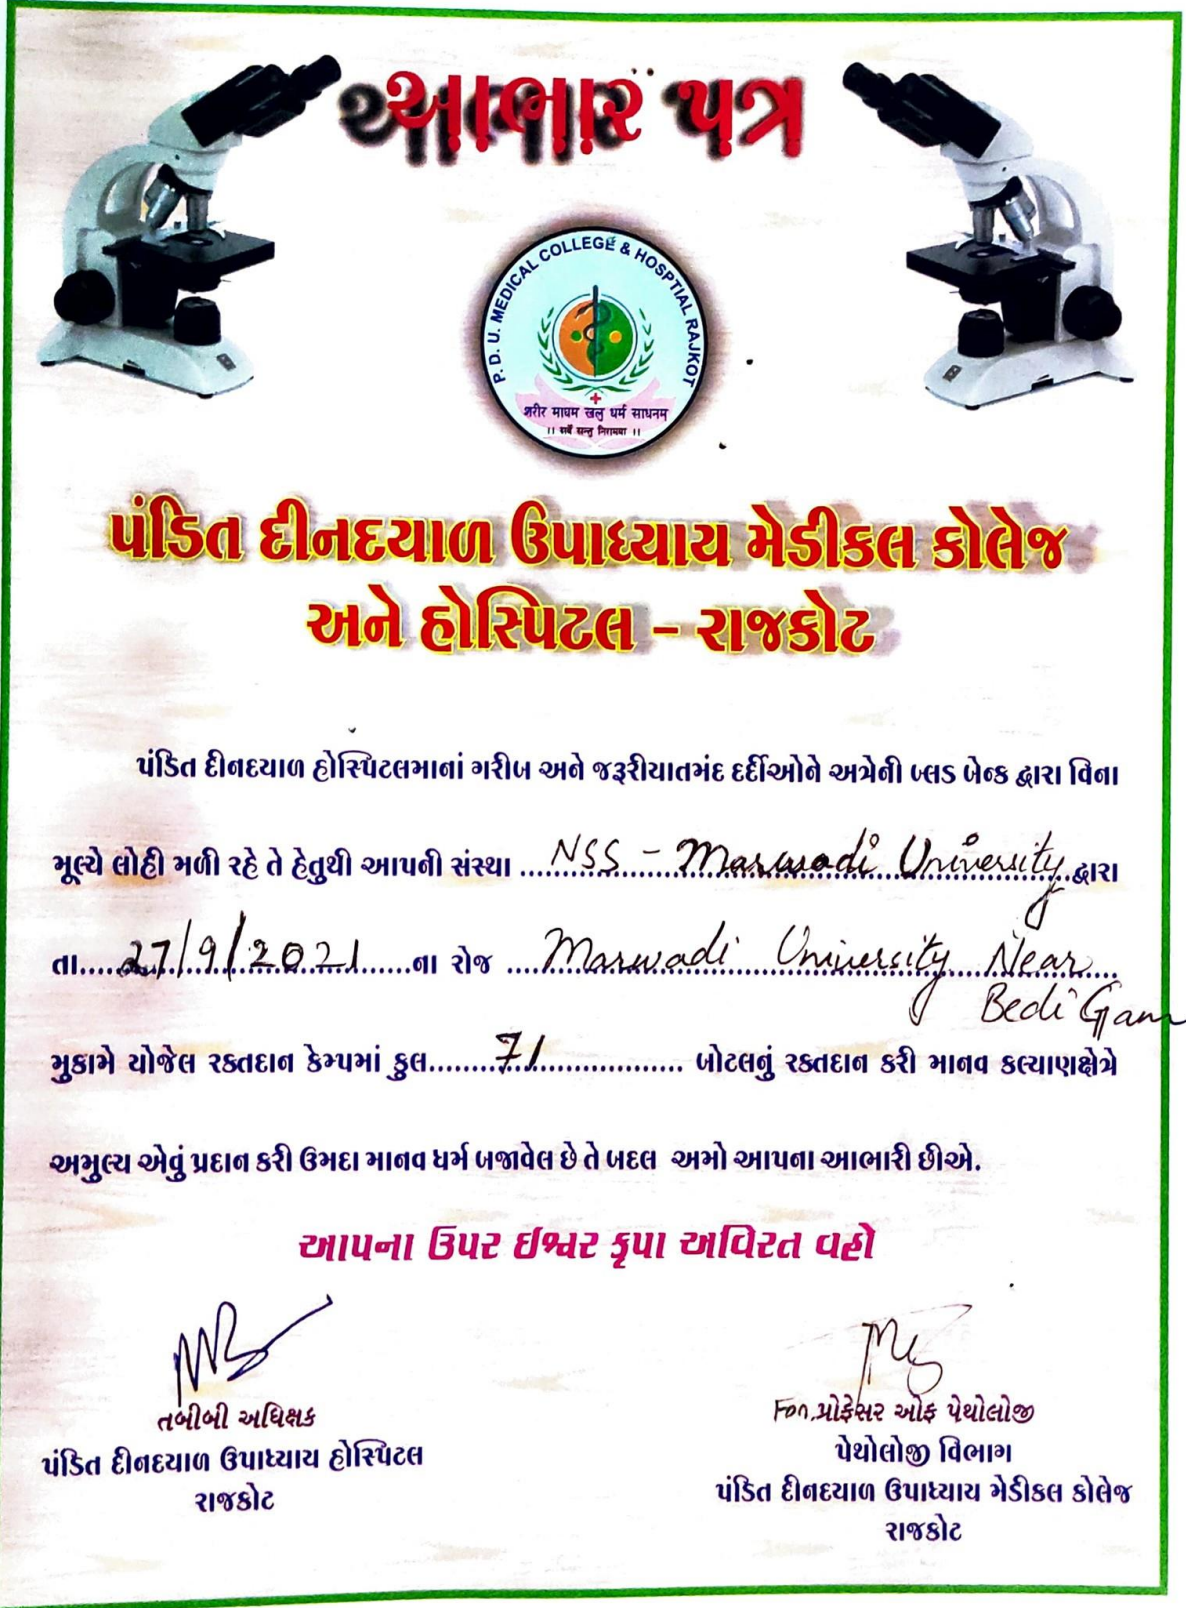 આભાર પત્ર
P. D. U. MEDICAL COLLEGE & HOSPTIAL RAJKOT
शरीर माधम खलु धर्म साधनम
।। सर्वे सन्तु निरामया ।।
પંડિત દીનદયાળ ઉપાધ્યાય મેડીકલ કોલેજ
અને હોસ્પિટલ – રાજકોટ
પંડિત દીનદયાળ હોસ્પિટલમાનાં ગરીબ અને જરૂરીયાતમંદ દર્દીઓને અત્રેની બ્લડ બેન્ક દ્વારા વિના
મૂલ્યે લોહી મળી રહે તે હેતુથી આપની સંસ્થા NSS - Marwadi University દ્વારા
તા. 27/9/2021 ના રોજ Marwadi University Near
Bedi Gam
મુકામે યોજેલ રક્તદાન કેમ્પમાં કુલ 71 બોટલનું રક્તદાન કરી માનવ કલ્યાણક્ષેત્રે
અમુલ્ય એવું પ્રદાન કરી ઉમદા માનવ ધર્મ બજાવેલ છે તે બદલ અમો આપના આભારી છીએ.
આપના ઉપર ઈશ્વર કૃપા અવિરત વહો
તબીબી અધિક્ષક
પંડિત દીનદયાળ ઉપાધ્યાય હોસ્પિટલ
રાજકોટ
For, પ્રોફેસર ઓફ પેથોલોજી
પેથોલોજી વિભાગ
પંડિત દીનદયાળ ઉપાધ્યાય મેડીકલ કોલેજ
રાજકોટ